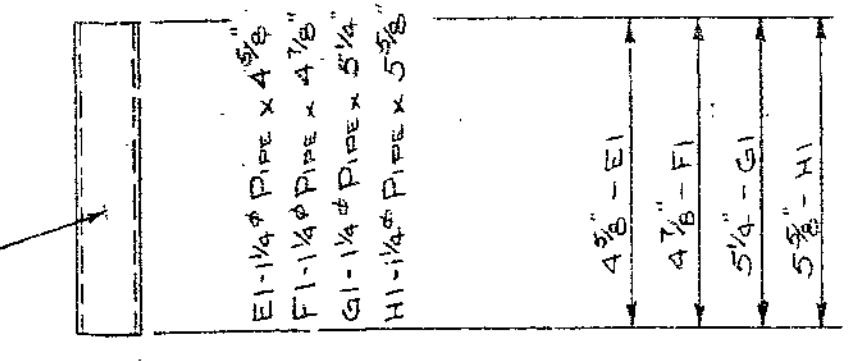 E1-1¼ø PIPE x 4⅝"
F1-1¼ø PIPE x 4⅞"
G1-1¼ø PIPE x 5¼"
H1-1¼ø PIPE x 5⅝"
4⅝" - E1
4⅞" - F1
5¼" - G1
5⅝" - H1